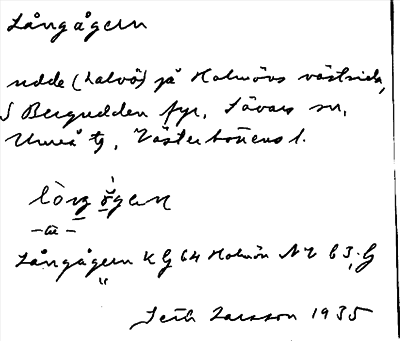 Långågern
udde (halvö) på Holmöns västsida,
S Bergudden fyr, Sävars sn,
Umeå tg, Västerbottens l.
Långågern KG 64 Holmön NV 63; G
Seth Larsson 1935